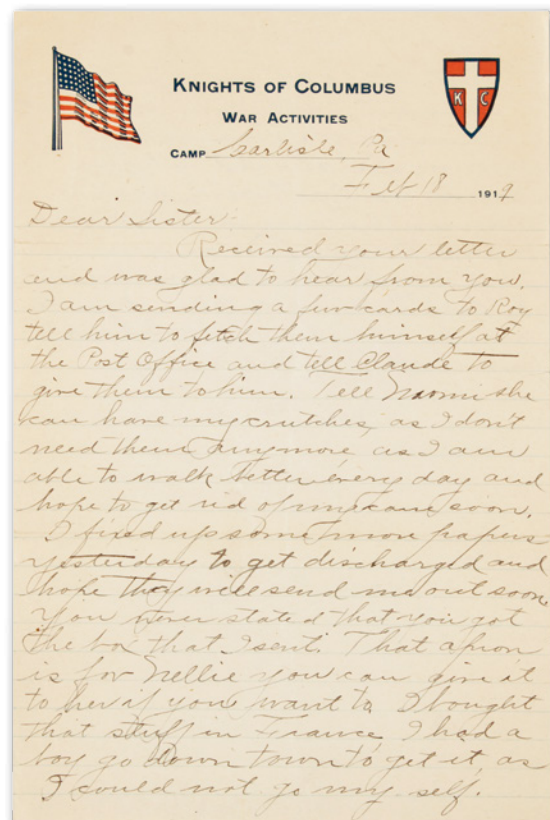 KNIGHTS OF COLUMBUS
WAR ACTIVITIES
K C
CAMP Carlisle, Pa
Feb 18 1919
Dear Sister
Received your letter
and was glad to hear from you.
I am sending a few cards to Roy
tell him to fetch them himself at
the Post Office and tell Claude to
give them to him. Tell Naomi she
can have my crutches, as I don't
need them anymore as I am
able to walk better every day and
hope to get rid of my cane soon.
I fixed up some more papers
yesterday to get discharged and
hope they will send me out soon
You never stated that you got
the box that I sent. That apron
is for Nellie you can give it
to her if you want to I bought
that stuff in France, I had a
boy go down town to get it, as
I could not go my self.